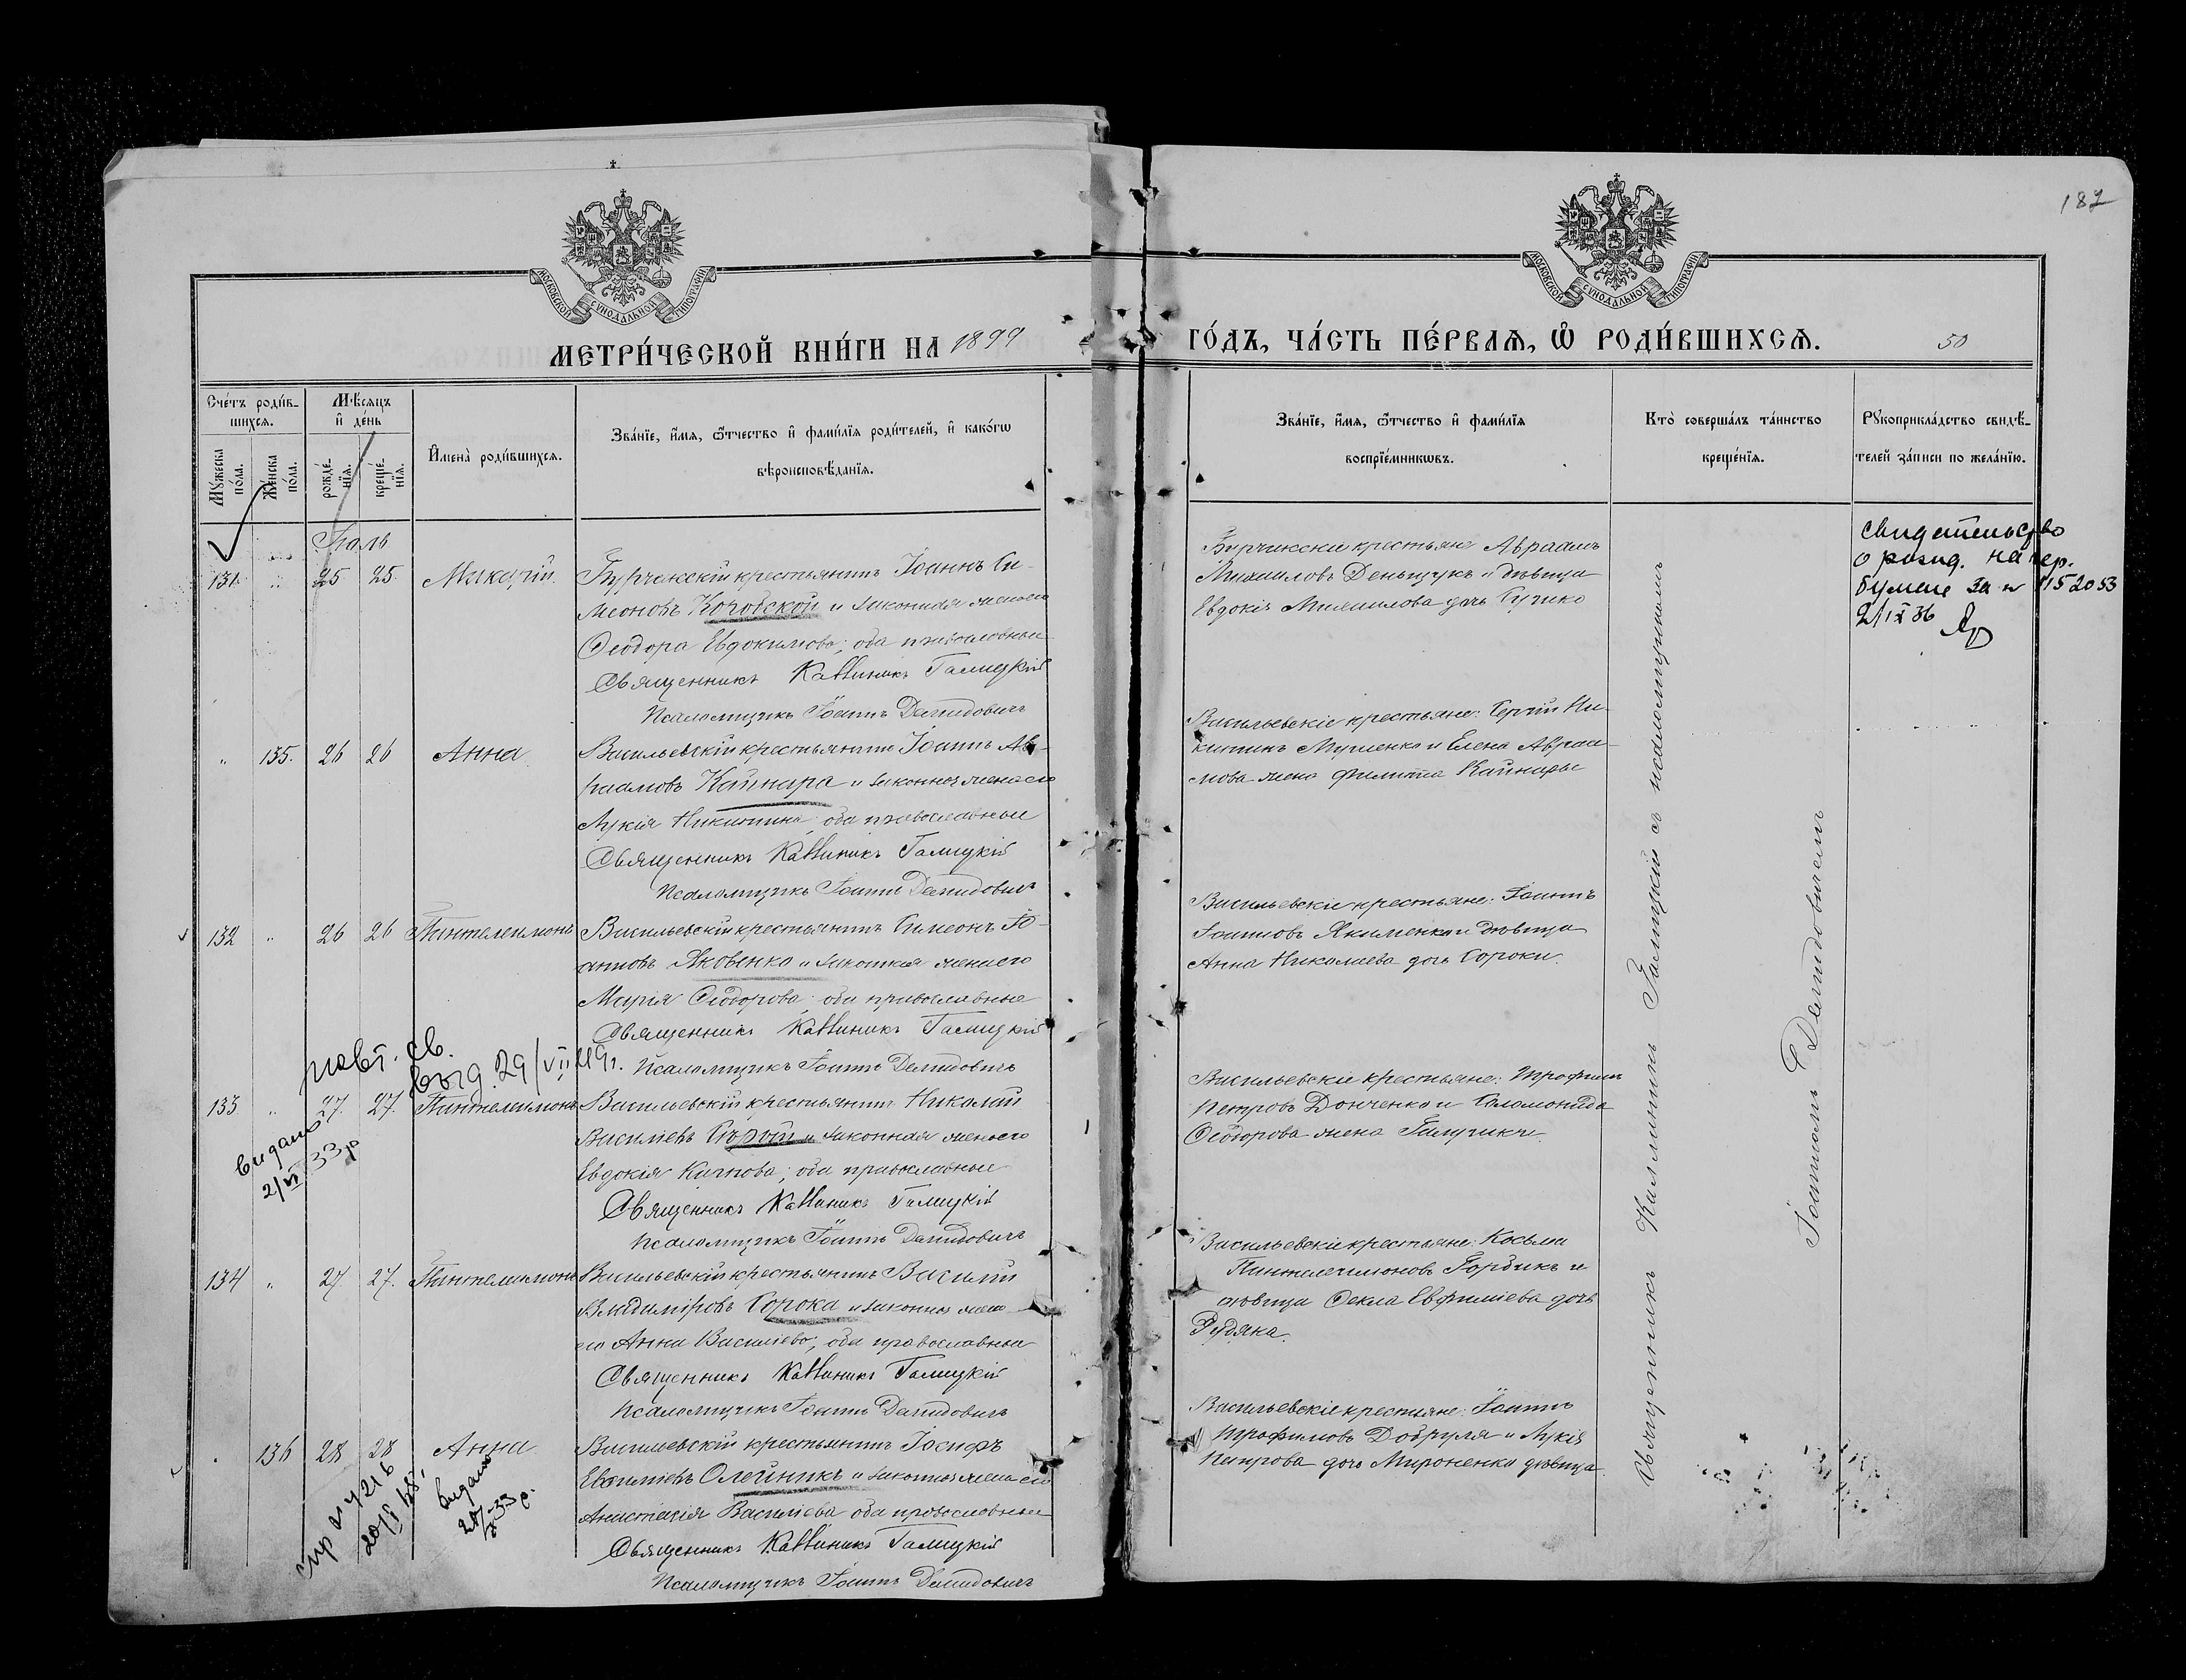 187
МОСКОВСКОЙ СѴНОДАЛЬНОЙ ТИПОГРАФІИ
МОСКОВСКОЙ СѴНОДАЛЬНОЙ ТИПОГРАФІИ
МЕТРИ́ЧЕСКОЙ КНИ́ГИ НА 1899
ГО́ДЪ, ЧА́СТЬ ПЕ́РВАѦ, Ѡ҆ РОДИ́ВШИХСѦ.
50
Сче́тъ роди́в-
шихсѧ.
Мѣ́сѧцъ
и҆ де́нь
Мꙋ́жеска по́ла.
Же́нска по́ла.
рожде́-
нїѧ.
креще́-
нїѧ.
И҆мена̀ роди́вшихсѧ.
Зва́нїе, и҆́мѧ, ѻ҆́тчество и҆ фами́лїѧ роди́телей, и҆ како́гѡ
вѣроисповѣ́данїѧ.
Зва́нїе, и҆́мѧ, ѻ҆́тчество и҆ фами́лїѧ
воспрїе́мникѡвъ.
Кто̀ соверша́лъ та́инство
креще́нїѧ.
Рꙋкоприкла́дство свидѣ́-
телей за́писи по жела́нїю.
Іюль
131. " 25 25. Макарій.
крестьянинъ Іоаннъ Си-
меоновъ и законная жена его
Ѳеодора Евдокимова; оба православные
Священникъ Каллиникъ Галицкій
Псаломщикъ Іоаннъ Демидовичъ
крестьяне Авраамъ
Михаиловъ Деньщукъ и дѣвица
Евдокія дочь
Свидетельство
о рожд. на гер.
бумаге за № 1152053
2/IX 36
" 135. 26 26 Анна.
Васильевскій крестьянинъ Іоаннъ Ав-
раамовъ Кайнара и законная жена его
Лукія Никитина; оба православные
Священникъ Каллиникъ Галицкій
Псаломщикъ Іоаннъ Демидовичъ
Васильевскіе крестьяне: Сергій Ни-
китинъ и Елена Авраа-
мова жена Филиппа Кайнары
132 " 26 26 Пантелеимонъ
Васильевскій крестьянинъ Симеонъ Іо-
анновъ Яковенко и законная жена его
Марія Ѳеодорова; оба православные
Священникъ Каллиникъ Галицкій
Псаломщикъ Іоаннъ Демидовичъ
Васильевскіе крестьяне: Іоаннъ
Іоанновъ Якименко и дѣвица
Анна Николаева дочь Сороки.
повт. св.
выд. 29/VII 49г.
133 " 27. 27. Пантелеимонъ
Васильевскій крестьянинъ Николай
Василіевъ и законная жена его
Евдокія Карпова; оба православные
Священникъ Каллиникъ Галицкій
Псаломщикъ Іоаннъ Демидовичъ
видано
2/VI 33 р
Васильевскіе крестьяне: Трофимъ
Петровъ Донченко и Соломонида
Ѳеодорова жена
134 " 27 27. Пантелеимонъ
Васильевскій крестьянинъ Василій
Владиміровъ Сорока и законная жена
его Анна Василіева; оба православные
Священникъ Каллиникъ Галицкій
Псаломщикъ Іоаннъ Демидовичъ
Васильевскіе крестьяне: Косьма
Пантелеимоновъ Горбикъ и
дѣвица Ѳекла Евфиміева дочь
Рудяка.
" 136 28 28 Анна
Васильевскій крестьянинъ Іосифъ
Евѳиміевъ Олейникъ и законная жена его
Анастасія Василіева оба православные
Священникъ Каллиникъ Галицкій
Псаломщикъ Іоаннъ Демидовичъ
видано
Васильевскіе крестьяне: Іоаннъ
Трофимовъ Добруля и Лукія
Петрова дочь Мироненко дѣвица.
Священникъ Каллиникъ Галицкій съ псаломщикомъ
Іоанномъ Демидовичемъ